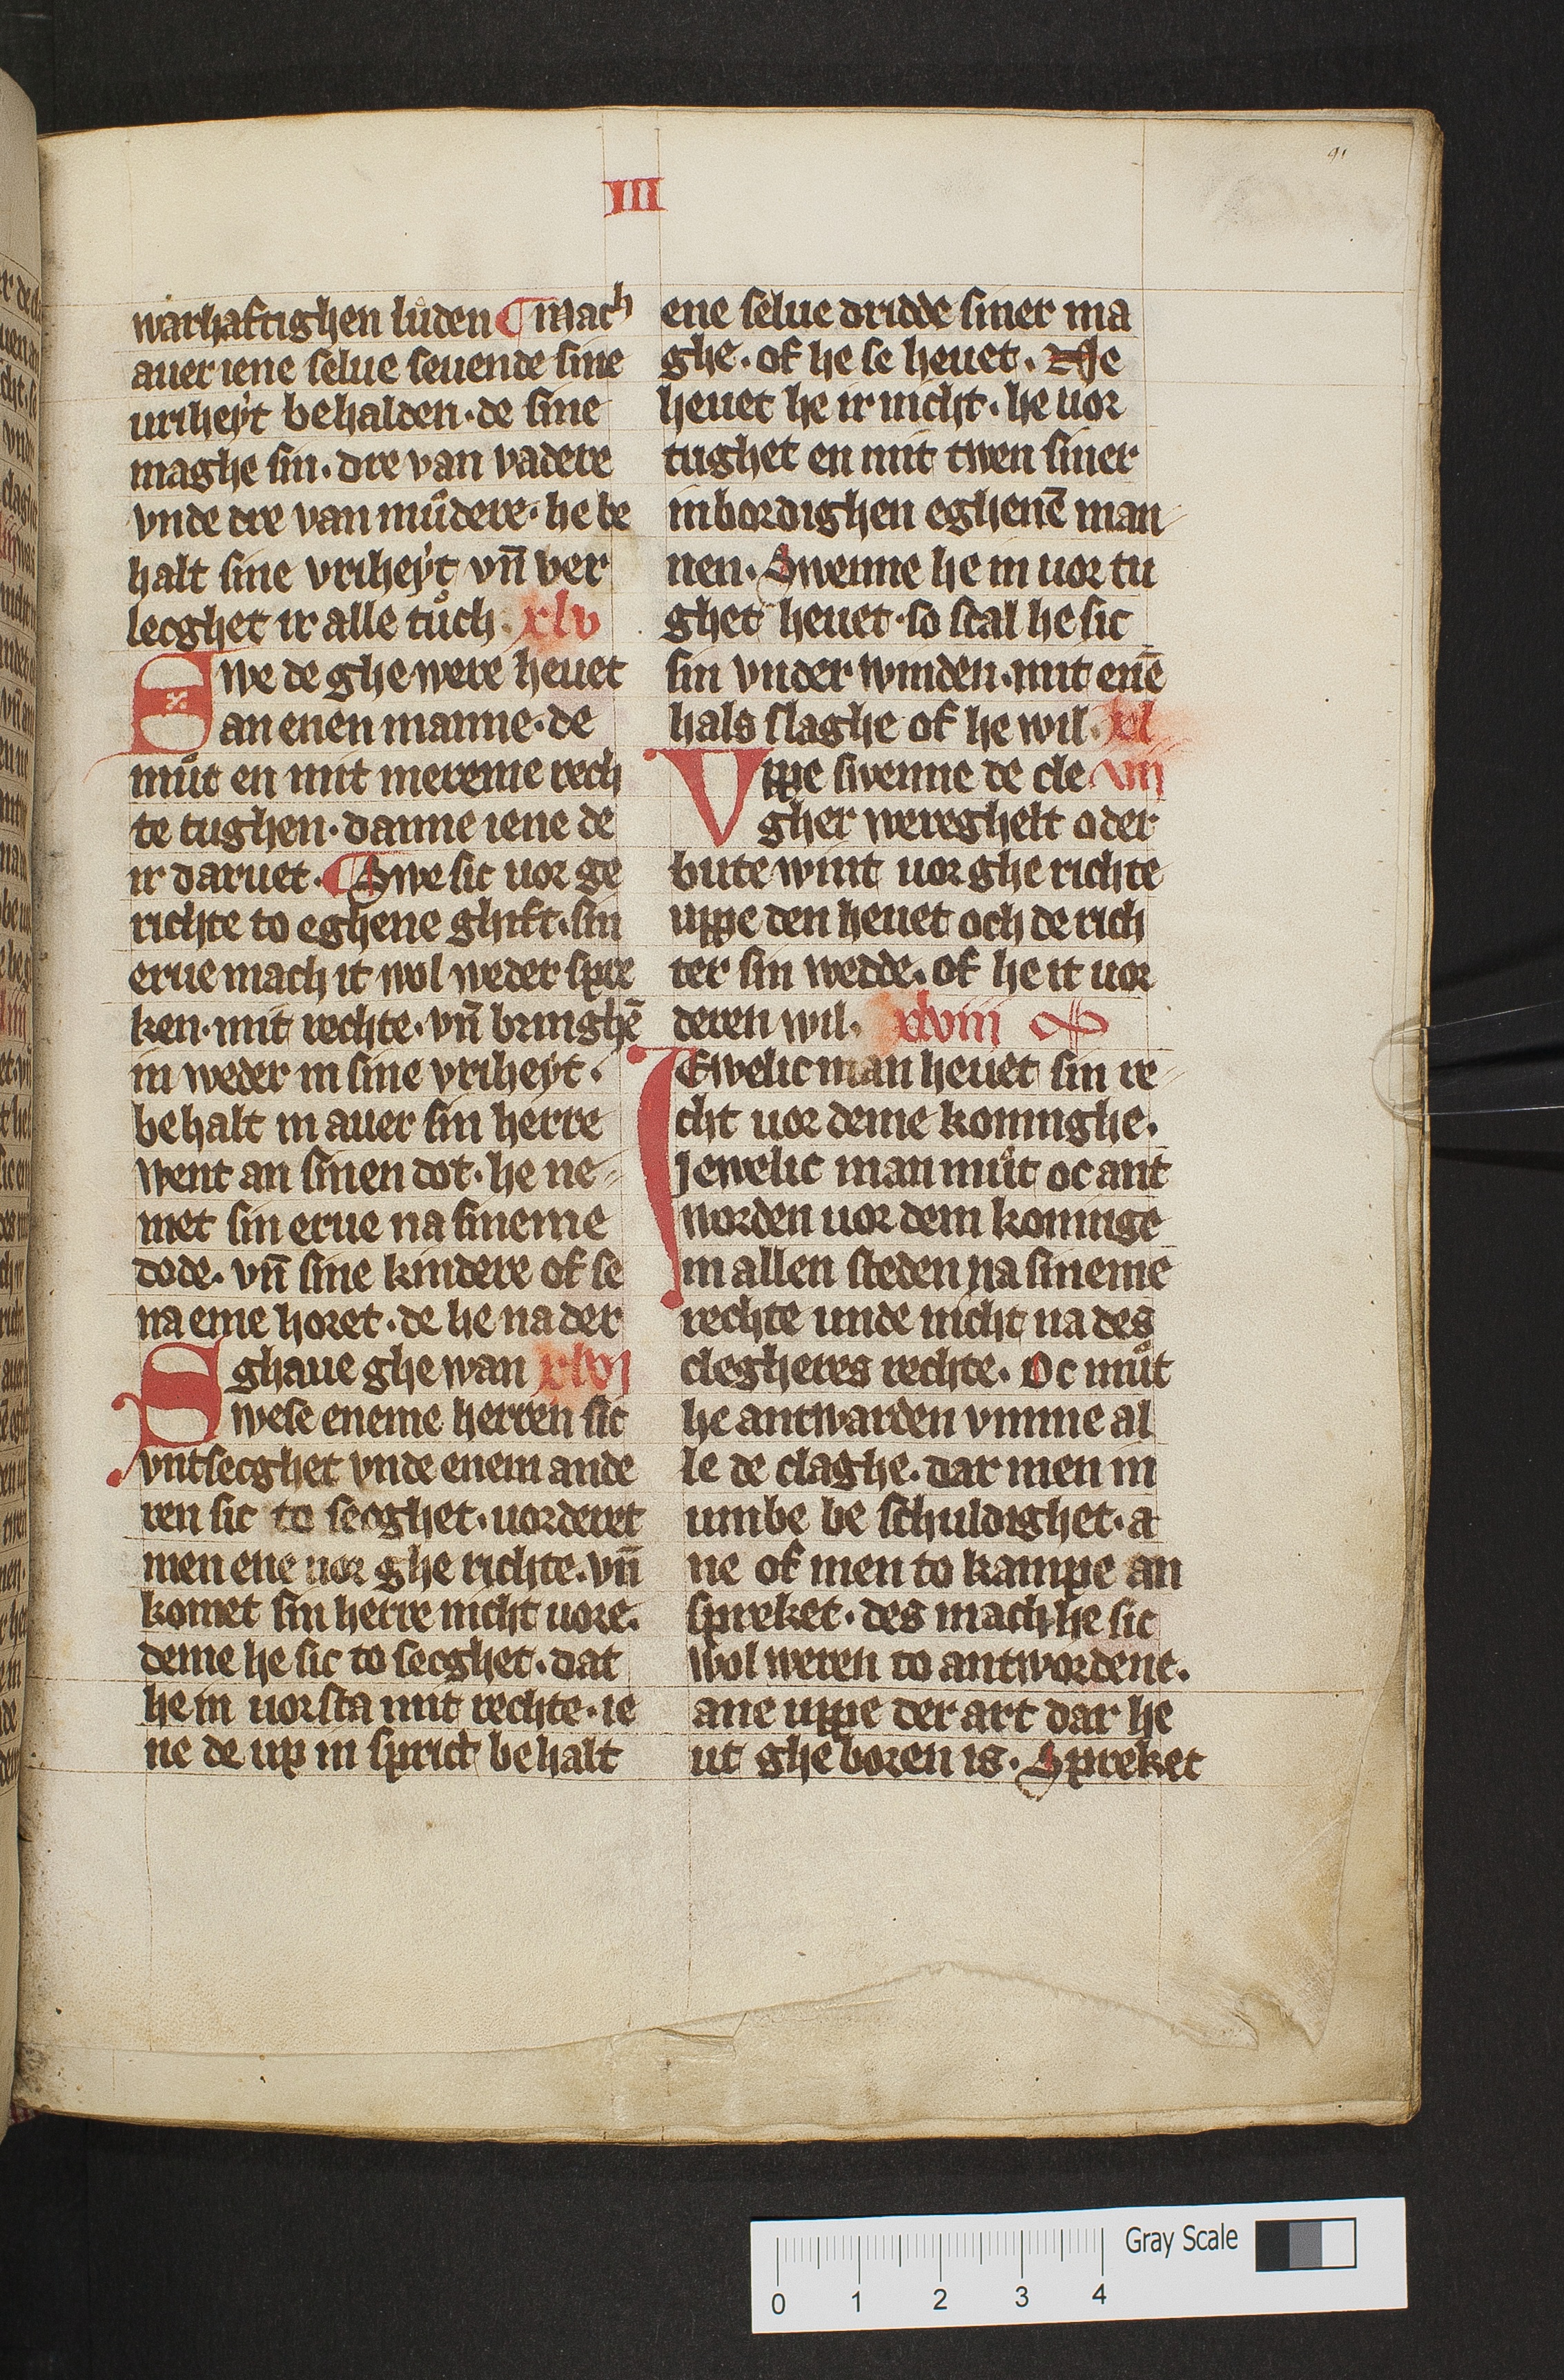 91
III
warhaftighen luͦden ¶ Mach
auer iene selue seuende sine
uriheyt behalden· de sine
maghe sin· dre van vadere
vnde dre van muͦdere· he be
halt sine vriheyt vn̄ ver
lecghet ir alle tuͦch· xlv
Swe de ghewere heuet
an enen manne· de
muͦt en mit mereme rech
te tughen· danne iene de
ir daruet· ¶ Swe sic uor ge
richte to eghene ghift· sin
erue mach it wol weder spre
ken· mit rechte· vn̄ bringhē
in weder in sine vriheyt·
behalt in auer sin herre
went an sinen dot· he ne-
met sin erue na sineme
dode· vn̄ sine kindere of se
na eme horet· de he na der
ghaue ghe wan xlvi
Swese eneme herren sic
vntsecghet vnde enem ande
ren sic to secghet· uorderet
men ene uor ghe richte· vn̄
komet sin herre nicht uore·
deme he sic to secghet· dat
he in uorsta mit rechte· ie
ne de up in sprict behalt
ene selue dridde siner ma
ghe· of he se heuet· Ne
heuet he ir nicht· he uor
tughet en mit twen siner
inbordighen eghenē man-
nen· Swenne he in uor tu
ghet heuet· so scal he sic
sin vnder winden· mit enē
hals slaghe of he wil· xl
Vppe swenne de cle vii
gher wereghelt oder
bute wint uor ghe richte
uppe den heuet och de rich
ter sin wedde· of he it uor
deren wil· xlviii
IEwelic man heuet sin re-
cht uor deme koninghe·
Jewelic man muͦt oc ant
worden uor dem koninge
in allen steden na sineme
rechte unde nicht na des
clegheres rechte· Oc muͦt
he antwarden vmme al
le de claghe· dar men in
umbe be schuldighet· a
ne of men to kampe an
spreket· des mach he sic
wol weren to antwordene·
ane uppe der art dar he
ut ghe boren is· Spreket
Gray Scale
0 1 2 3 4